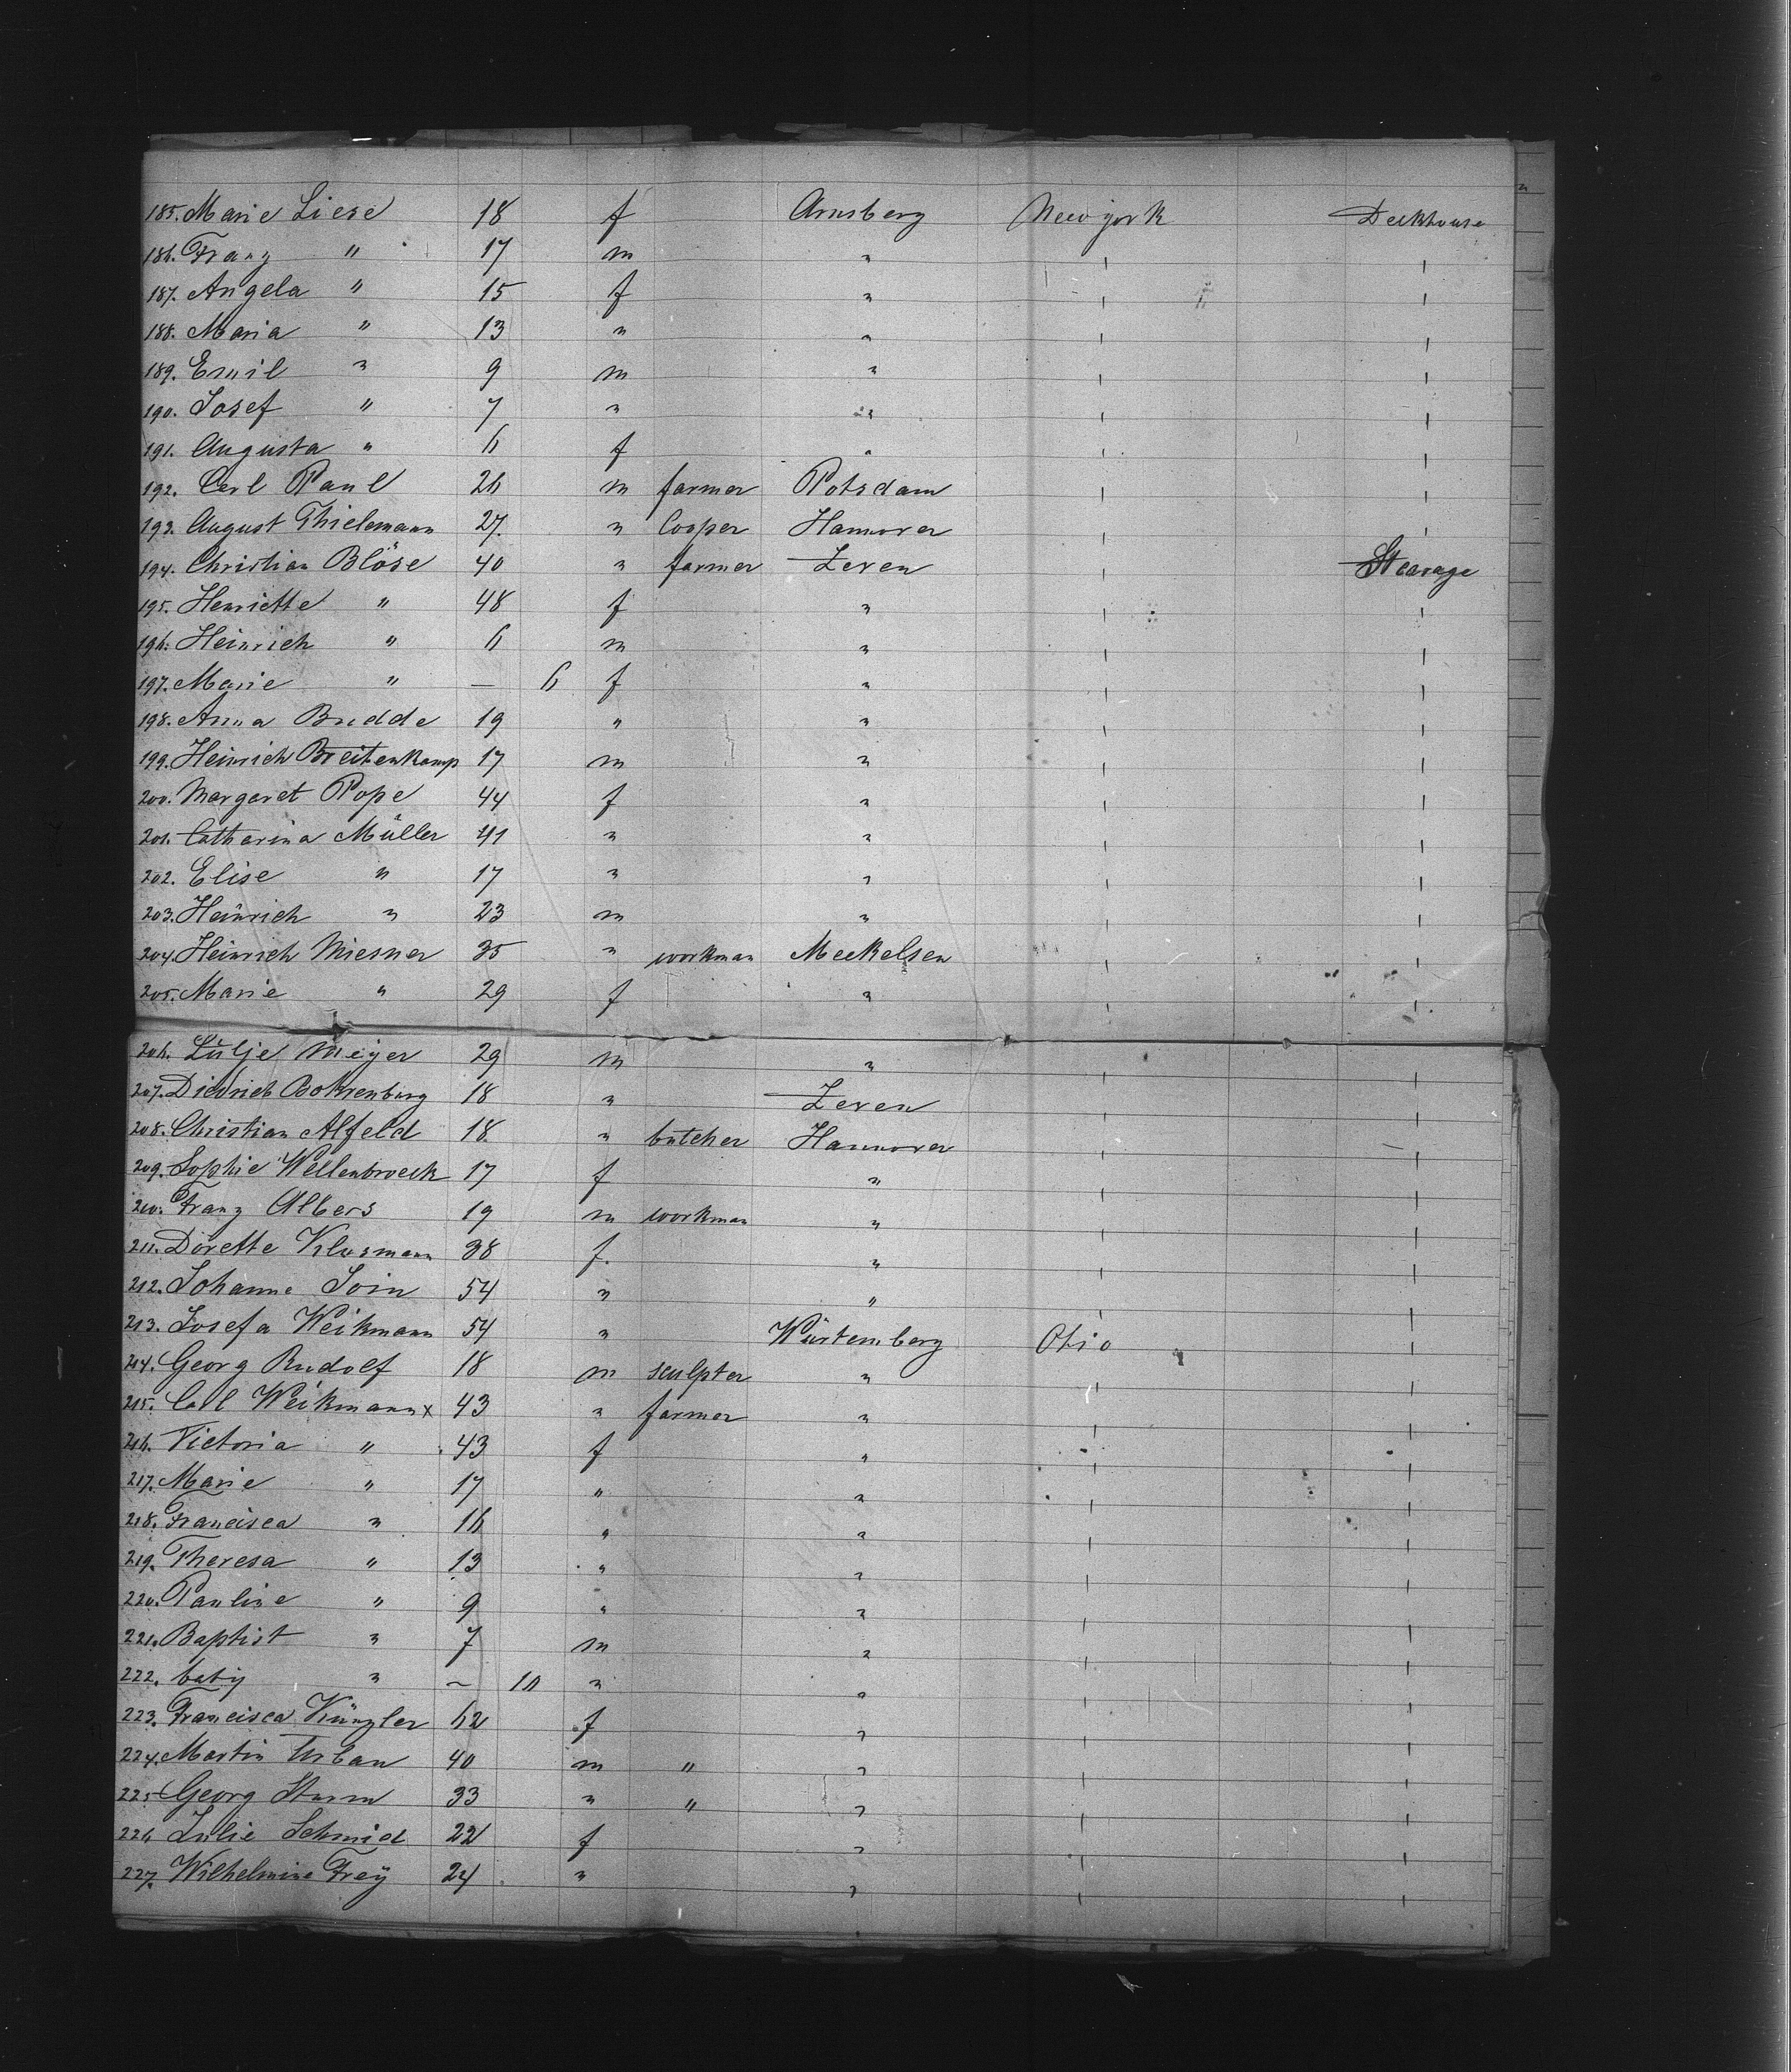 185. Marie Liese 18 f Arnsberg New york Deckhouse
186. Franz " 17 m " ı ı
187. Angela " 15 f " ı ı
188. Maria " 13 " " ı ı
189. Emil " 9 m " ı ı
190. Josef " 7 " " ı ı
191. Augusta " 6 f " ı ı
192. Carl Paul 26 m farmer Potsdam ı ı
193. August Thielemann 27. " Cooper Hannover ı ı
194. Christian Blöse 40 " farmer Zeven ı Stearage
195. Henriette " 48 f " ı ı
196. Heinrich " 6 m " ı ı
197. Marie " — 6 f " ı ı
198. Anna Budde 19 " " ı ı
199. Heinrich Breitenkamp 17 m " ı ı
200. Margaret Pope 44 f " ı ı
201. Catharina Müller 41 " " ı ı
202. Elise " 17 " " ı ı
203. Heinrich " 23 m " ı ı
204. Heinrich Miesner 35 " workman Meckelsen ı ı
205. Marie " 29 f " ı ı
206. Lülje Meijer 29 m " ı ı
207. Diedrich 18 " Zeven ı ı
208. Christian Alfeld 18 " butcher Hannover ı ı
209. Sophie Wellenbroeck 17 f " ı ı
210. Franz Albers 19 m workman " ı ı
211. Dorette Klusmann 38 f. " ı ı
212. Johanne Join 54 " " ı ı
213. Josefa Weikmann 54 " Würtemberg Ohio ı
214. Georg Rudolf 18 m sculpter " ı ı
215. Carl Weikmann x 43 " farmer " ı ı
216. Victoria " 43 f " ı ı
217. Marie " 17 " " ı ı
218. Francisca " 16 " " ı ı
219. Theresa " 13 " " ı ı
220. Pauline " 9 " " ı ı
221. Baptist " 7 m " ı ı
222. baby " — 10 " " ı ı
223. Francisca Künzler 62 f " ı ı
224. Martin Urban 40 m " " ı ı
225 Georg Sturm 33 " " " ı ı
226 Julie Schmid 22 f " ı ı
227. Wilhelmine Frey 24 " " ı ı